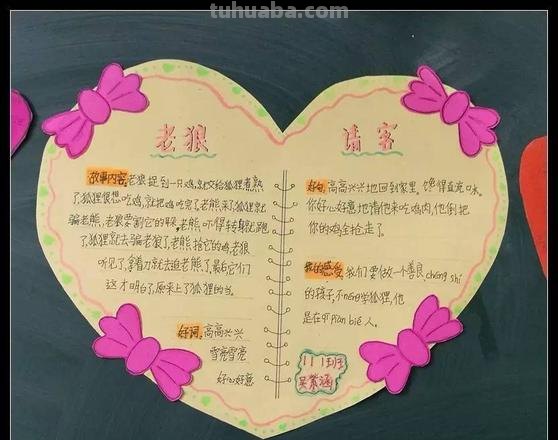 tuhuaba.com
老狼 请客
故事内容:老狼捉到一只鸡,就交给狐狸煮熟
了,狐狸很想吃鸡,就把鸡吃完了,老熊来了,狐狸就
骗老熊,老狼要割它的耳朵,老熊吓得转身就跑
了,狐狸就去骗老狼了,老熊抢它的鸡,老狼
听见了,拿着刀就去追老熊了,最后它们
这才明白了,原来上了狐狸的当。
好词:高高兴兴
雪亮雪亮
好心好意
好句:高高兴兴地回到家里。馋得直流口水。
你好心好意地请他来吃鸡肉,他倒把
你的鸡全抢走了。
我的感受:我们要做一个善良、chéng shí
的孩子,不néng学狐狸,他
是在欺piàn bié人。
111班
吴紫涵